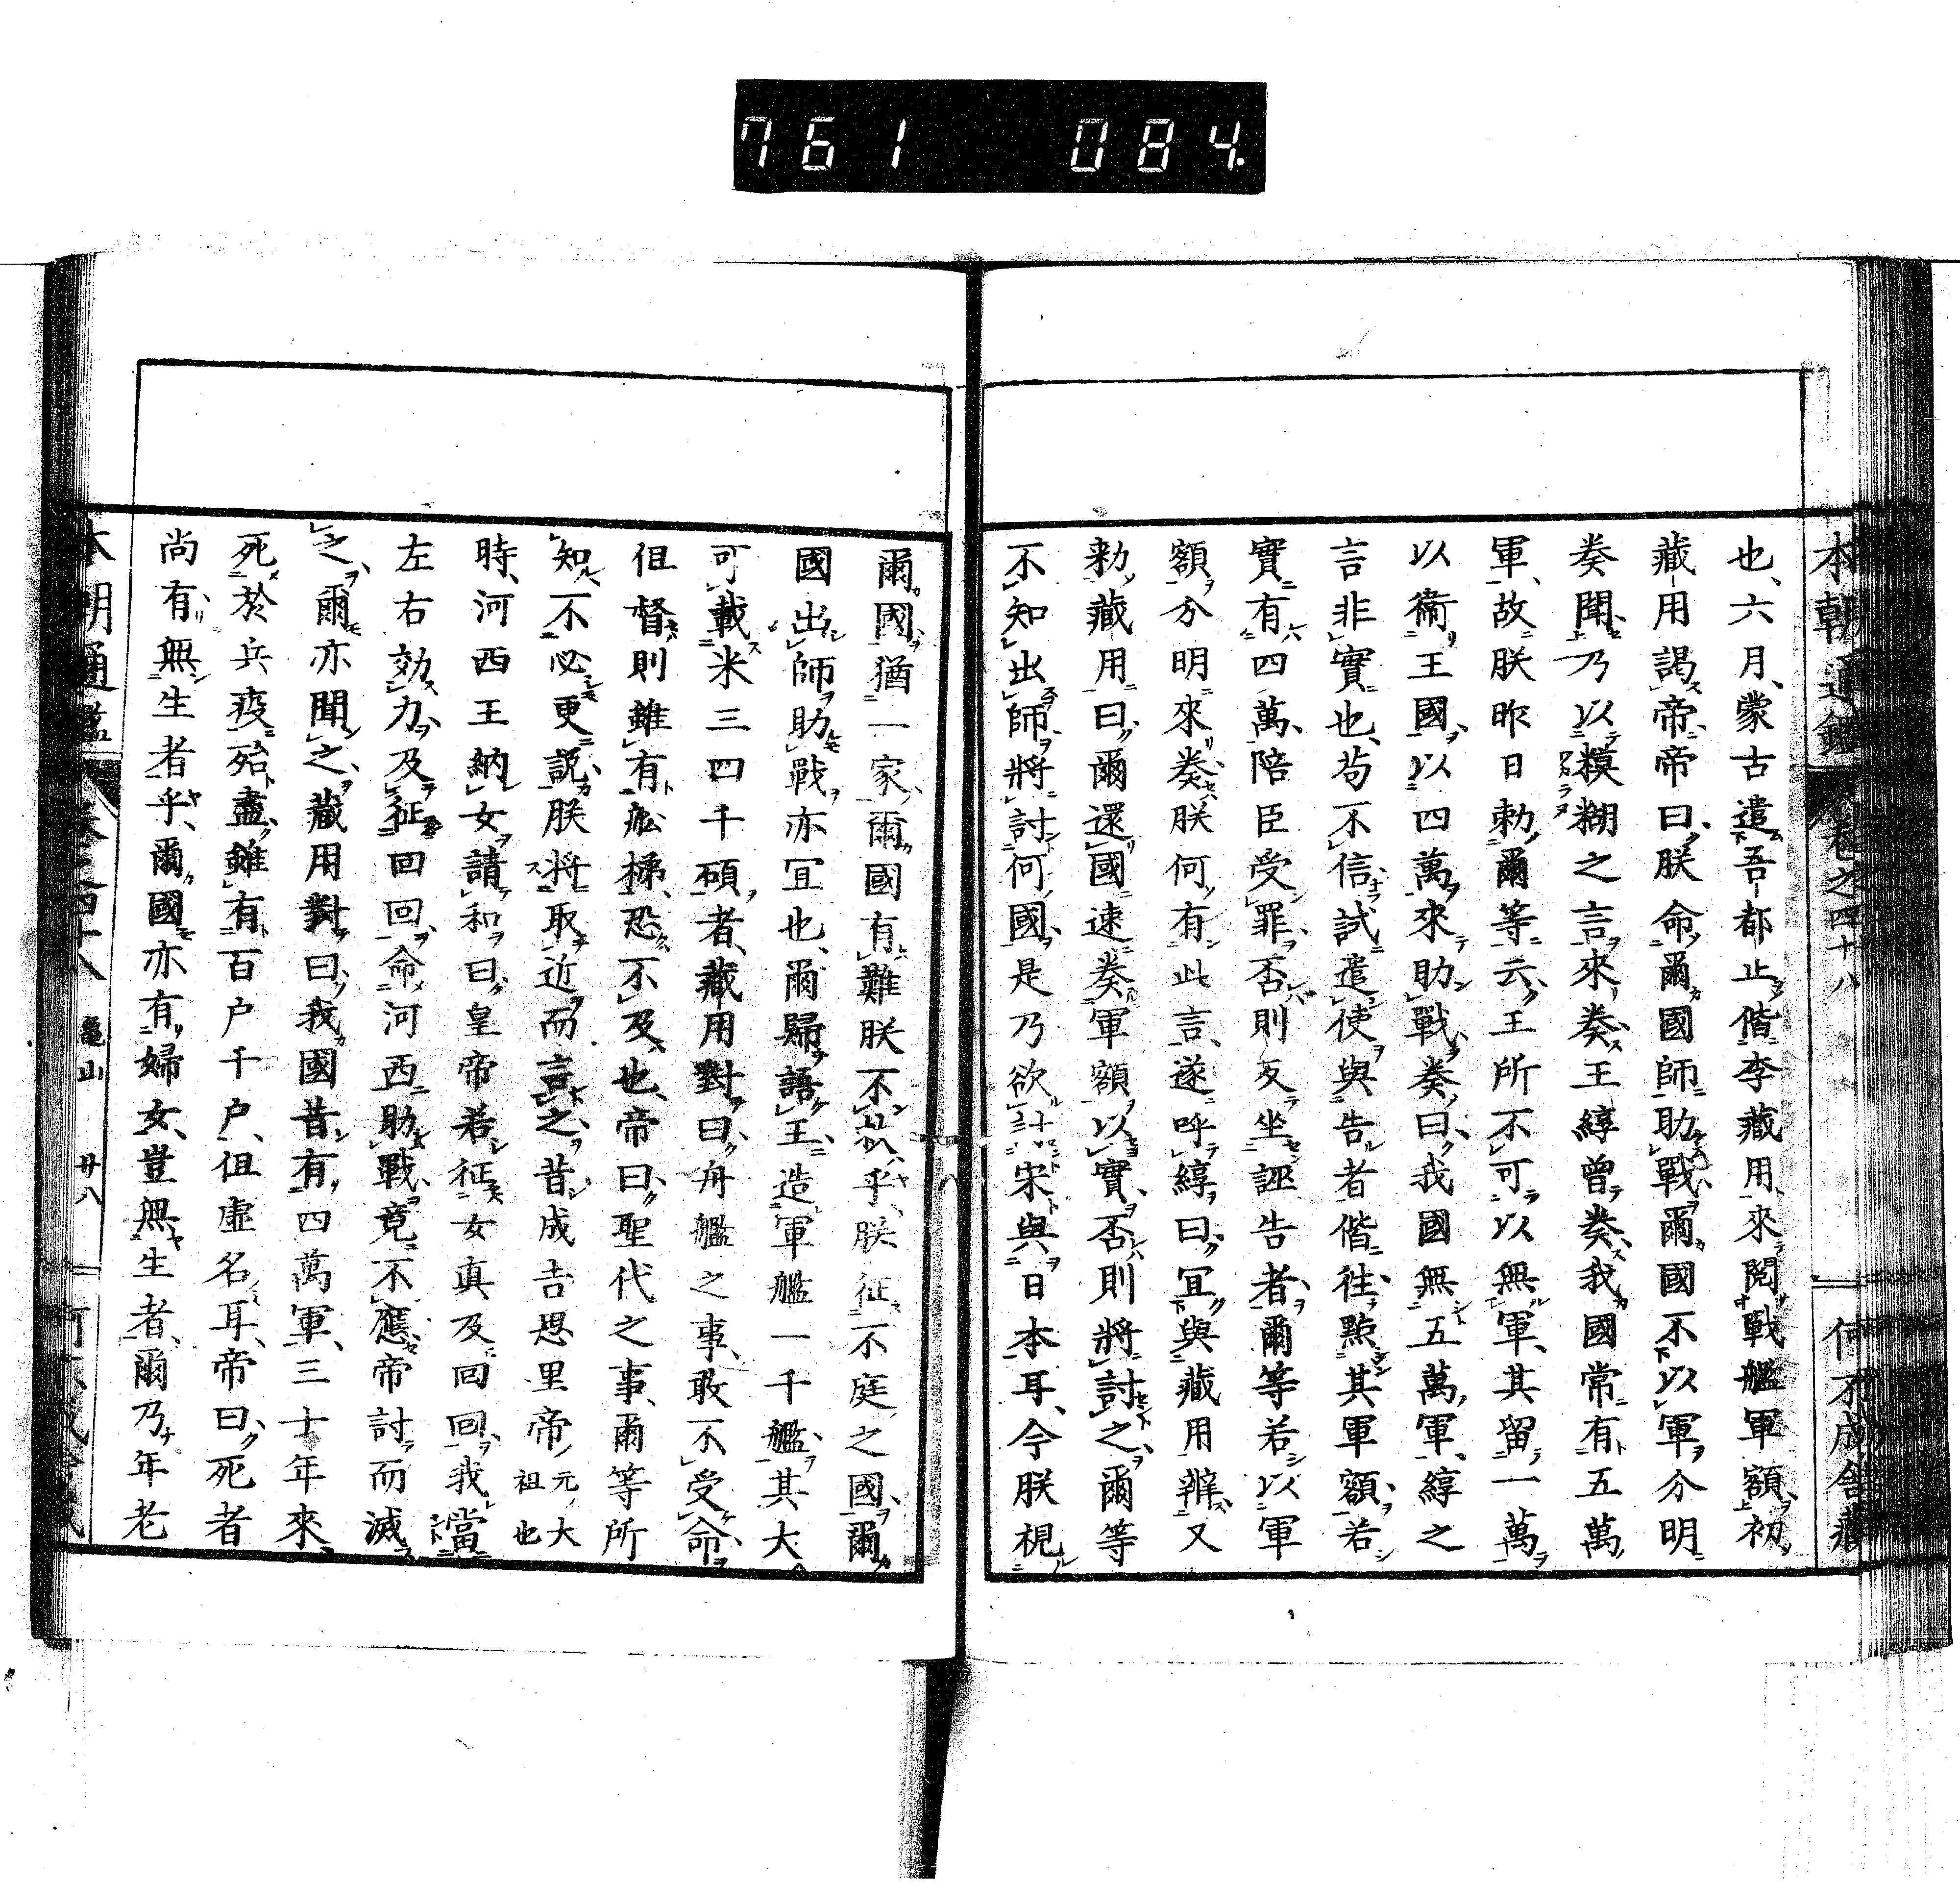 761 084.
本朝通鑑 卷之四十八 何不成舍藏
也、六月、蒙古遣吾都止偕李藏用來閲戰艦軍額初
藏用謁帝帝曰朕命爾國師助戰爾國不以軍分明
奏聞乃以糢糊之言來奏王綧曾奏我國常有五萬
軍、故朕昨日勅爾等云王所不可以無軍、其留一萬
以衞王國以四萬來助戰奏曰我國無五萬軍、綧之
言非實也、苟不信試遣使與告者偕徃點其軍額若
實有四萬陪臣受罪否則反坐誣告者爾等若以軍
額分明來奏朕何有此言遂呼綧曰宜與藏用辨又
勅藏用曰爾還國速奏軍額以實否則將討之爾等
不知出師將討何國是乃欲討宋與日本耳、今朕視
爾國猶一家爾國有難朕不救乎、朕征不庭之國爾
國出師助戰亦宜也、爾歸語王造軍艦一千艦其大
可載米三四千碩者藏用對曰舟艦之事、敢不受命
但督則雖有舩㮨恐不及也、帝曰聖代之事、爾等所
知不必更説朕將取近而言之昔成吉思里帝元大祖也
時、河西王納女請和曰皇帝若征女真及回回我當
左右効力及征回回命河西助戰竟不應帝討而滅
之爾亦聞之藏用對曰我國昔有四萬軍、三十年來
死於兵疫殆盡雖有百户千户、但虛名耳、帝曰死者
尚有無生者乎、爾國亦有婦女、豈無生者、爾乃年老
本朝通鑑 卷之四十八 龜山 廿八